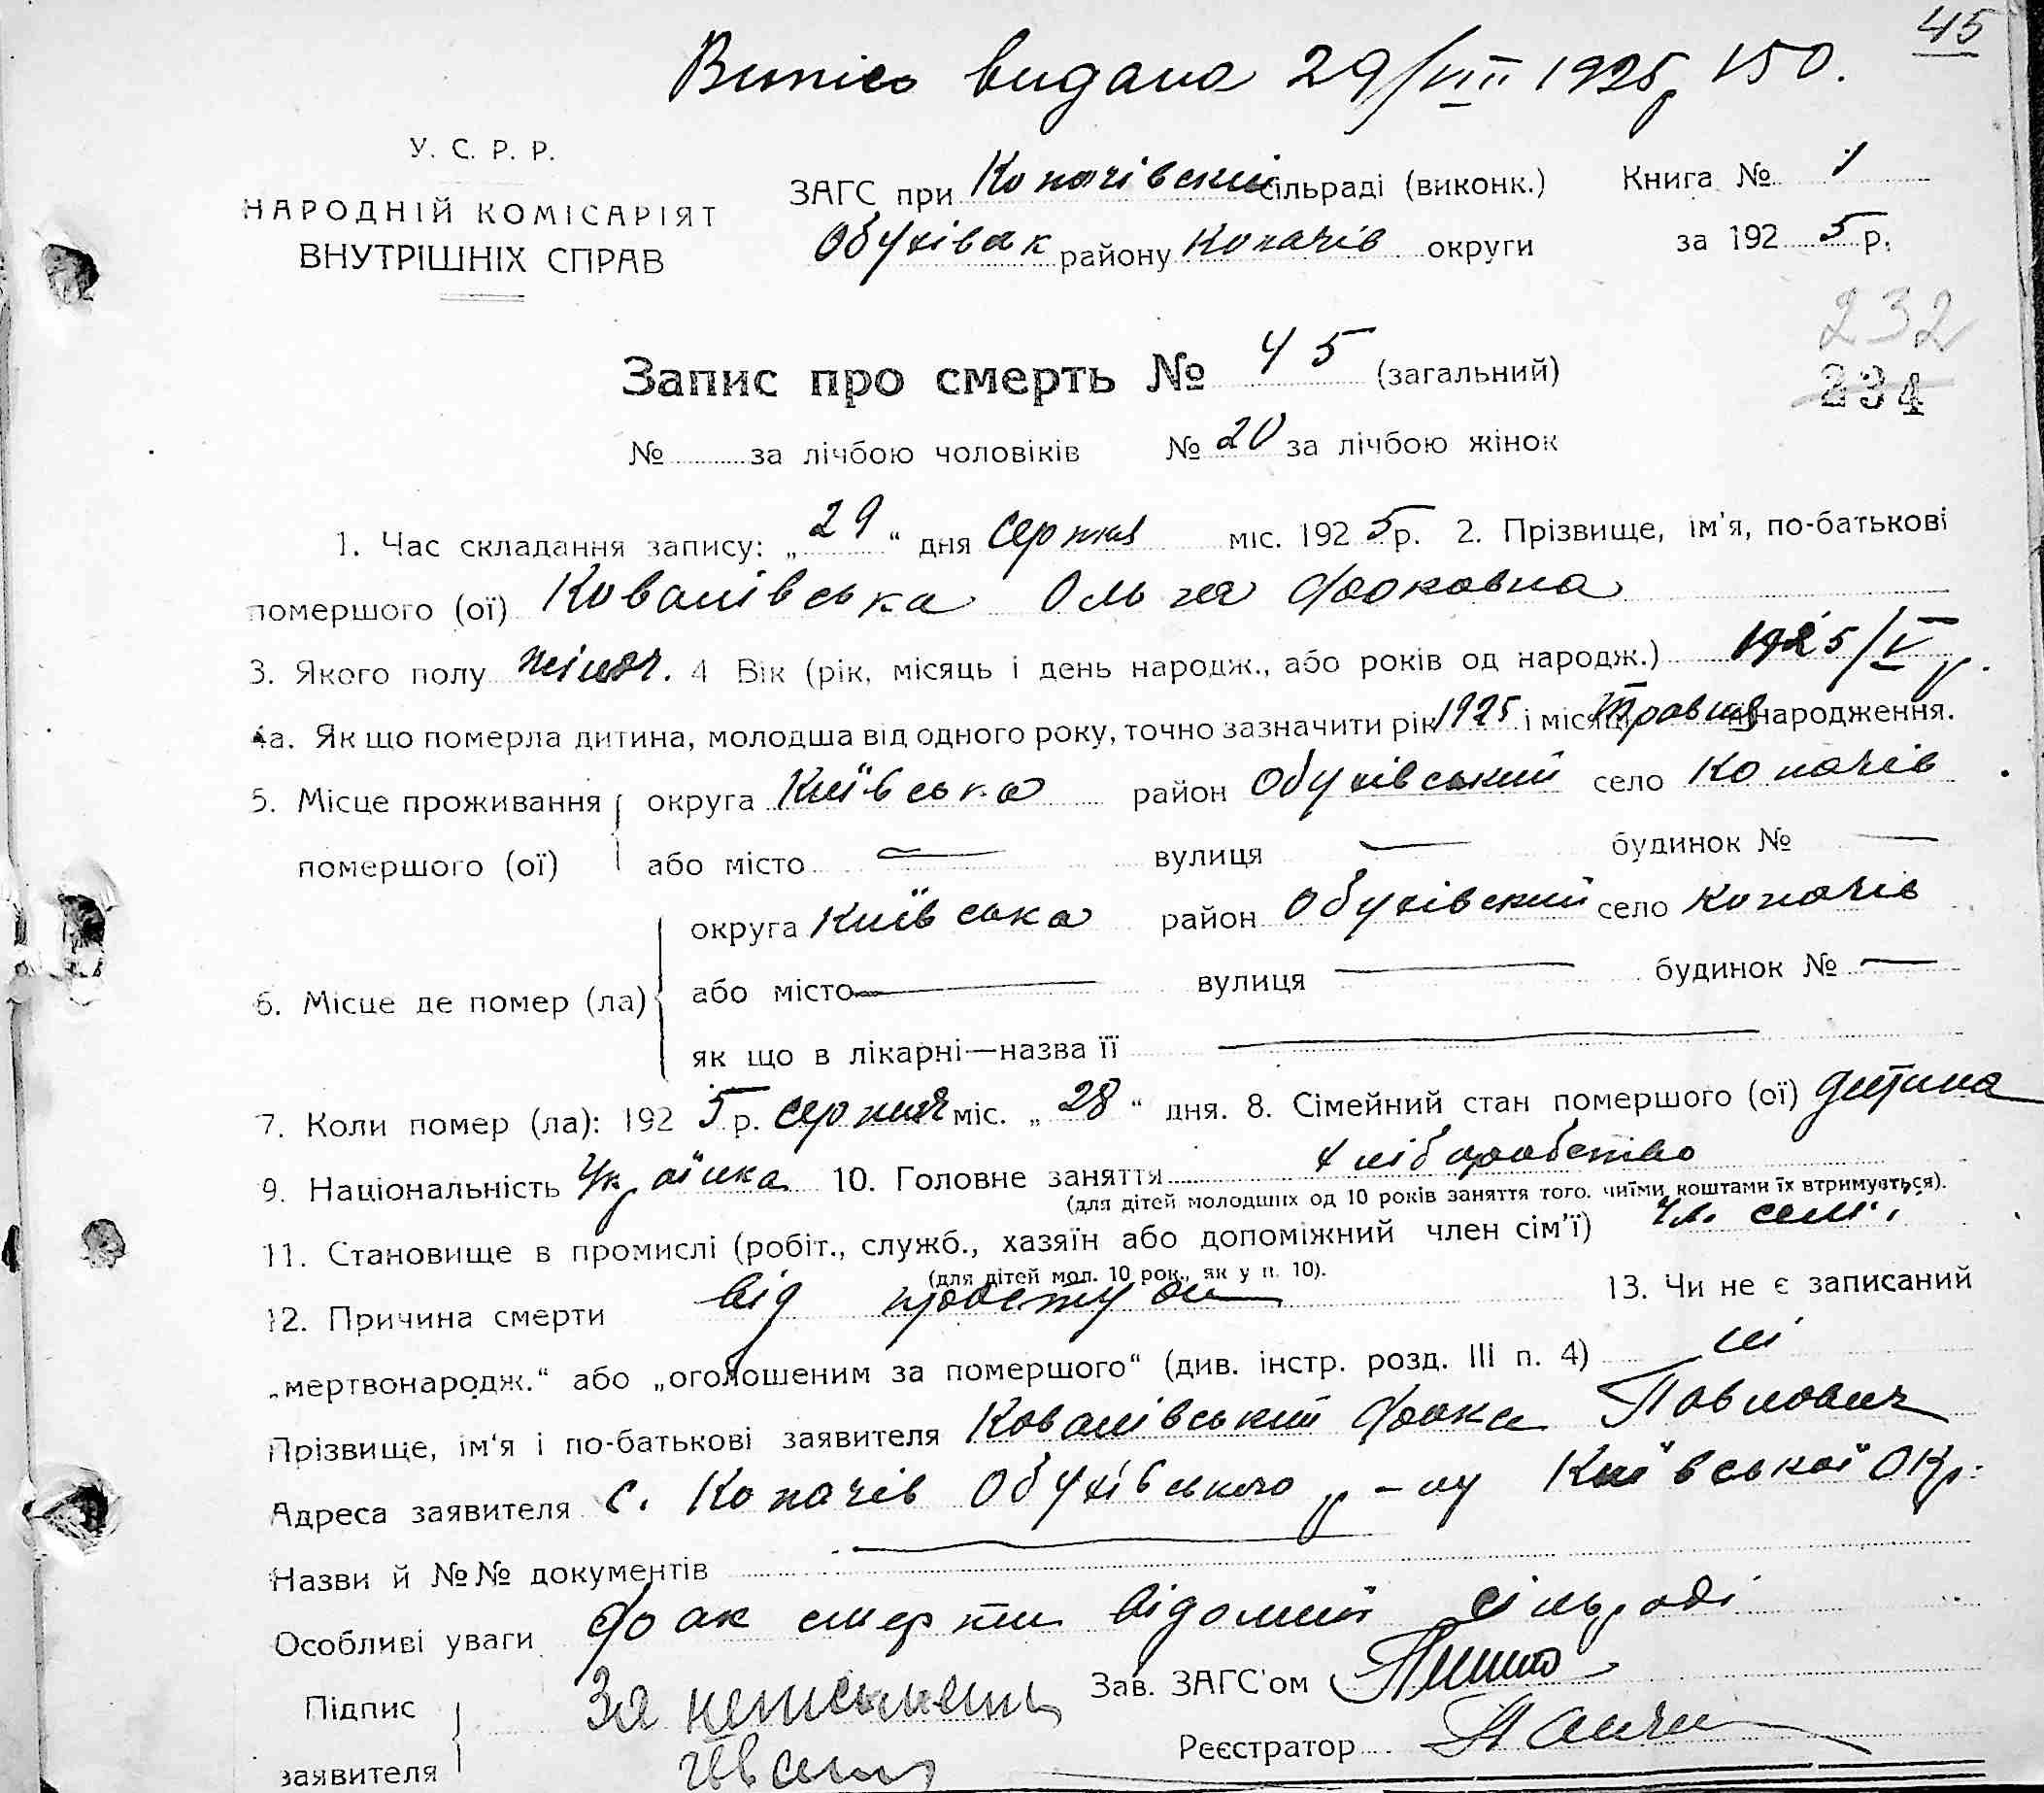 45
Випись видана 29/VIII 1925р. №150.
У. С. Р. Р.
НАРОДНІЙ КОМІСАРІЯТ
ВНУТРІШНІХ СПРАВ
ЗАГС при Копачівский сільраді (виконк.) Книга № 1
Обухівськ району Копачів округи за 1925 р.
232
234
Запис про смерть № 45 (загальний)
№ за лічбою чоловіків № 20 за лічбою жінок
1. Час складання запису: „29“ дня серпня міс. 1925 р. 2. Прізвище, ім'я, по-батькові
помершого (ої) Ковалівська Ольга Фоковна
3. Якого полу жіноч. 4 Вік (рік, місяць і день народж., або років од народж.) 1925/V р.
4а. Як що померла дитина, молодша від одного року, точно зазначити рік 1925 і місяць Травня народження.
5. Місце проживання округа Київська район Обухівський село Копачів
помершого (ої) або місто — вулиця — будинок № —
округа Київська район Обухівский село Копачів
6. Місце де помер (ла) або місто — вулиця — будинок № —
як що в лікарні—назва її —
7. Коли помер (ла): 1925 р. серпня міс. „28“ дня. 8. Сімейний стан помершого (ої) дитина
9. Національність Українка 10. Головне заняття хліборобство
(для дітей молодших од 10 років заняття того, чиїми коштами їх втримується).
11. Становище в промислі (робіт., служб., хазяїн або допоміжний член сім'ї) чл. семі
(для дітей мол. 10 рок., як у п. 10).
12. Причина смерти від простуди 13. Чи не є записаний
„мертвонародж.“ або „оголошеним за помершого“ (див. інстр. розд. III п. 4) ні
Прізвище, ім'я і по-батькові заявителя Ковалівський Фока Павлович
Адреса заявителя с. Копачів Обухівського р-ну Київської Окр.
Назви й №№ документів —
Особливі уваги Фак смерти відомий сільраді
Підпис За неписьмен Зав. ЗАГС'ом
заявителя Реєстратор